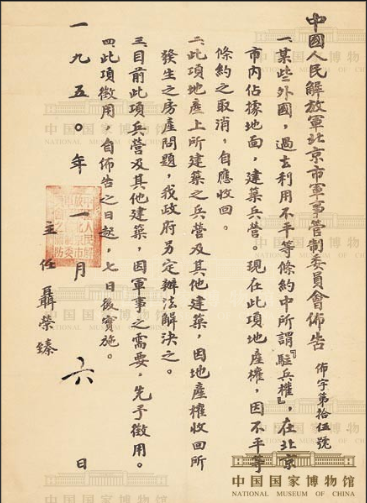 中國人民解放軍北京市軍事管制委員會佈告
佈字第拾伍號
一某些外國，過去利用不平等條約中所謂『駐兵權』，在北京
市內佔據地面，建築兵營。現在此項地產權，因不平等
條約之取消，自應收回。
二此項地產上所建築之兵營及其他建築，因地產權收回所
發生之房產問題，我政府另定辦法解決之。
三目前此項兵營及其他建築，因軍事之需要，先予徵用。
四此項徵用，自佈告之日起，七日後實施。
主任聶榮臻
一九五〇年一月六日
中国国家博物馆
NATIONAL MUSEUM OF CHINA